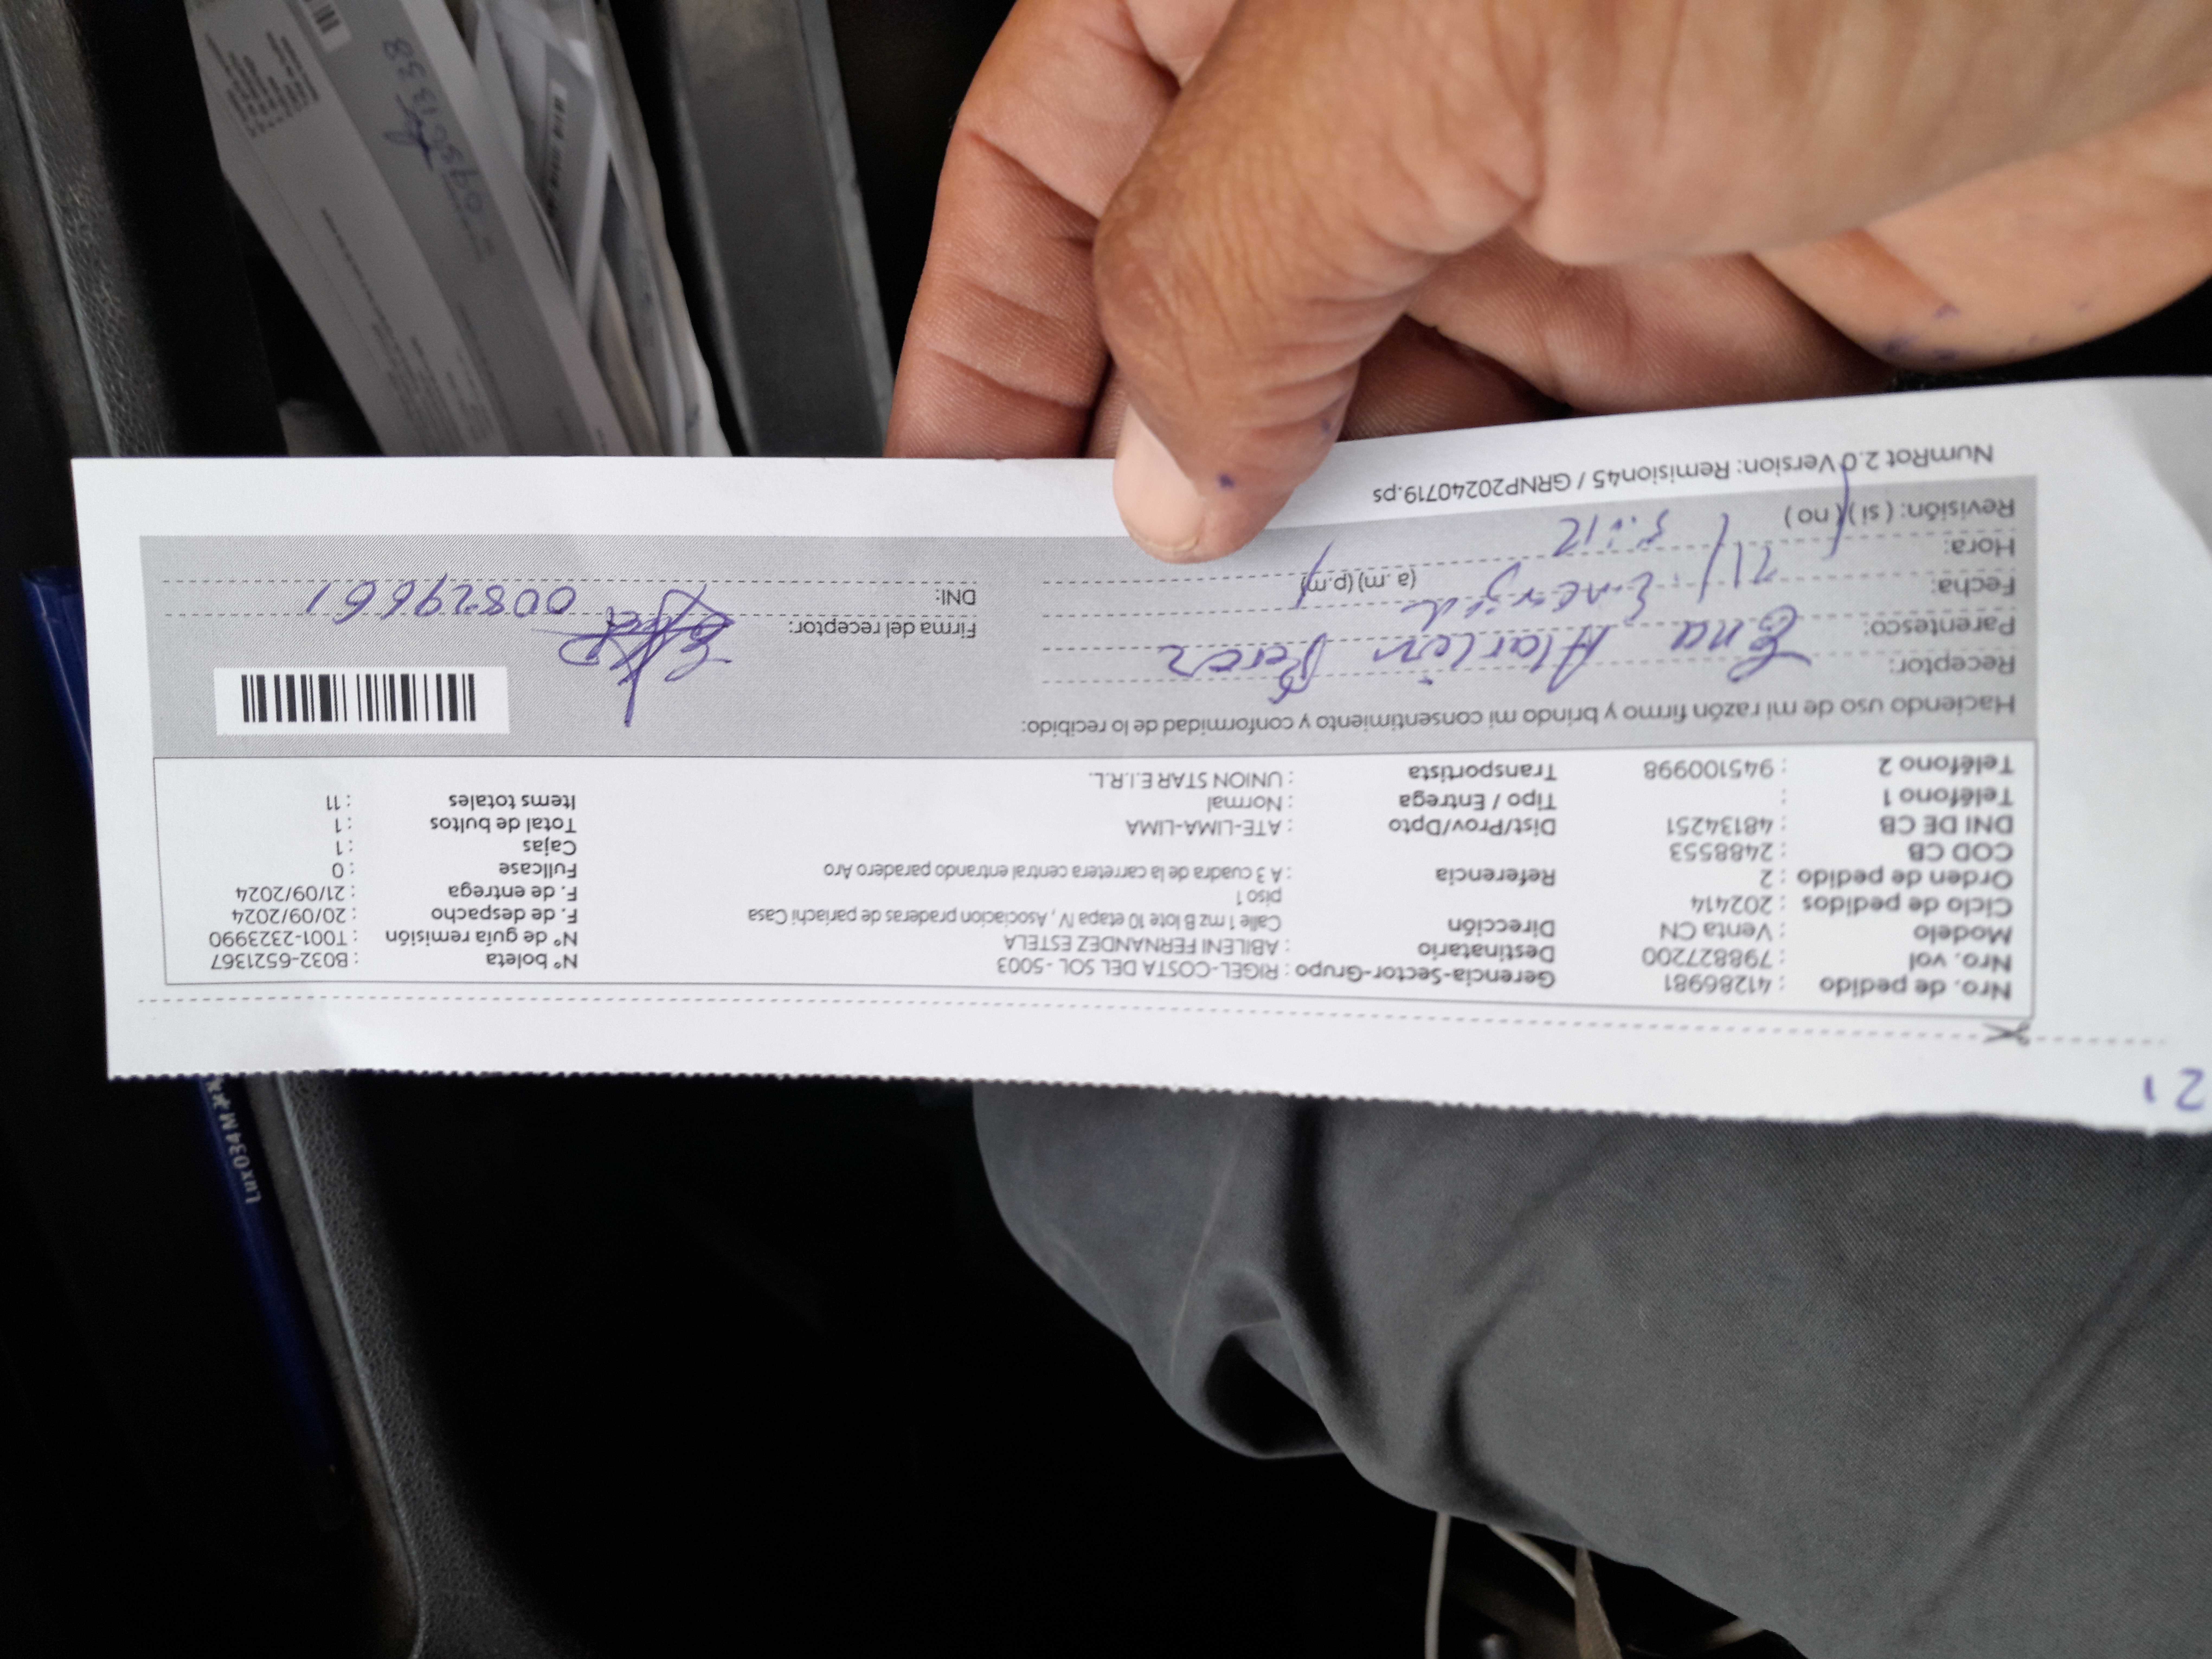 21
Nro. de pedido : 41286981 Gerencia-Sector-Grupo : RIGEL-COSTA DEL SOL -5003 N° boleta : B032-6521367
Nro. vol : 798827200 Destinatario : ABILENI FERNANDEZ ESTELA N° de guía remisión : T001-2323990
Modelo : Venta CN Dirección Calle 1 mz B lote 10 etapa IV , Asociacion praderas de pariachi Casa F. de despacho : 20/09/2024
piso 1
Ciclo de pedidos : 202414 F. de entrega : 21/09/2024
Orden de pedido : 2 Referencia : A 3 cuadra de la carretera central entrando paradero Aro Fullcase : 0
COD CB : 2488553 Cajas : 1
DNI DE CB : 48134251 Dist/Prov/Dpto : ATE-LIMA-LIMA Total de bultos : 1
Teléfono 1 : Tipo / Entrega : Normal Items totales : 11
Teléfono 2 : 945100998 Transportista : UNION STAR E.I.R.L.
Haciendo uso de mi razón firmo y brindo mi consentimiento y conformidad de lo recibido:
Receptor: Ena Marlen Perez
Parentesco:
Firma del receptor:
Fecha: 21/
DNI: 00829661
Hora: (a .m) (p.m) 3:12
Revisión: ( si ) ( no )
NumRot 2.0 Version: Remision45 / GRNP20240719.ps
Lux034M